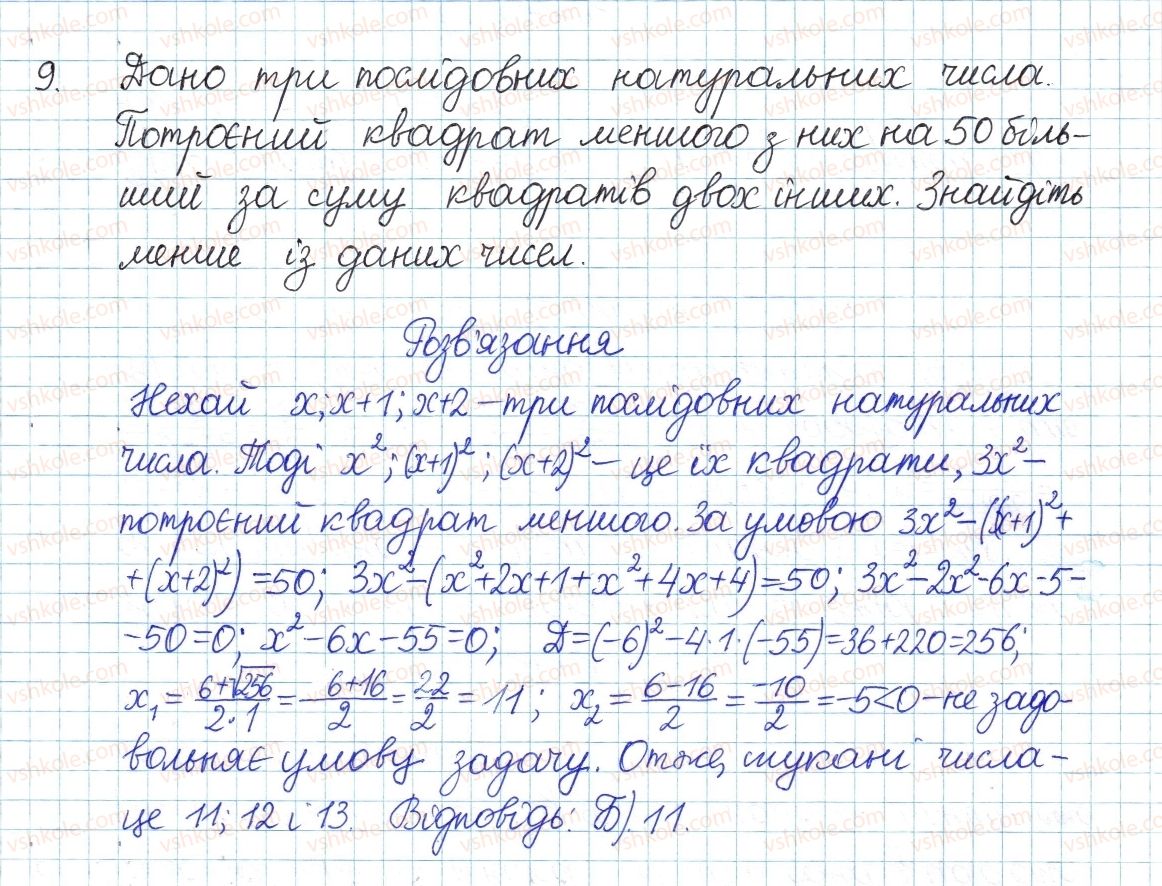 9. Дано три послідовних натуральних числа.
Потроєний квадрат меншого з них на 50 біль-
ший за суму квадратів двох інших. Знайдіть
менше із даних чисел.
Розв'язання
Нехай x; x+1; x+2 – три послідовних натуральних
числа. Тоді x²; (x+1)²; (x+2)² – це їх квадрати, 3x² –
потроєний квадрат меншого. За умовою 3x² – ((x+1)² +
+(x+2)²) = 50; 3x² – (x²+2x+1+x²+4x+4) = 50; 3x² – 2x² – 6x – 5 –
– 50 = 0; x² – 6x – 55 = 0; D = (–6)² – 4·1·(–55) = 36+220 = 256;
x₁ = (6+√256)/(2·1) = (6+16)/2 = 22/2 = 11; x₂ = (6–16)/2 = –10/2 = –5<0 – не задо-
вольняє умову задачу. Отже, шукані числа –
це 11; 12 і 13. Відповідь: Б) 11.
vshkole.com